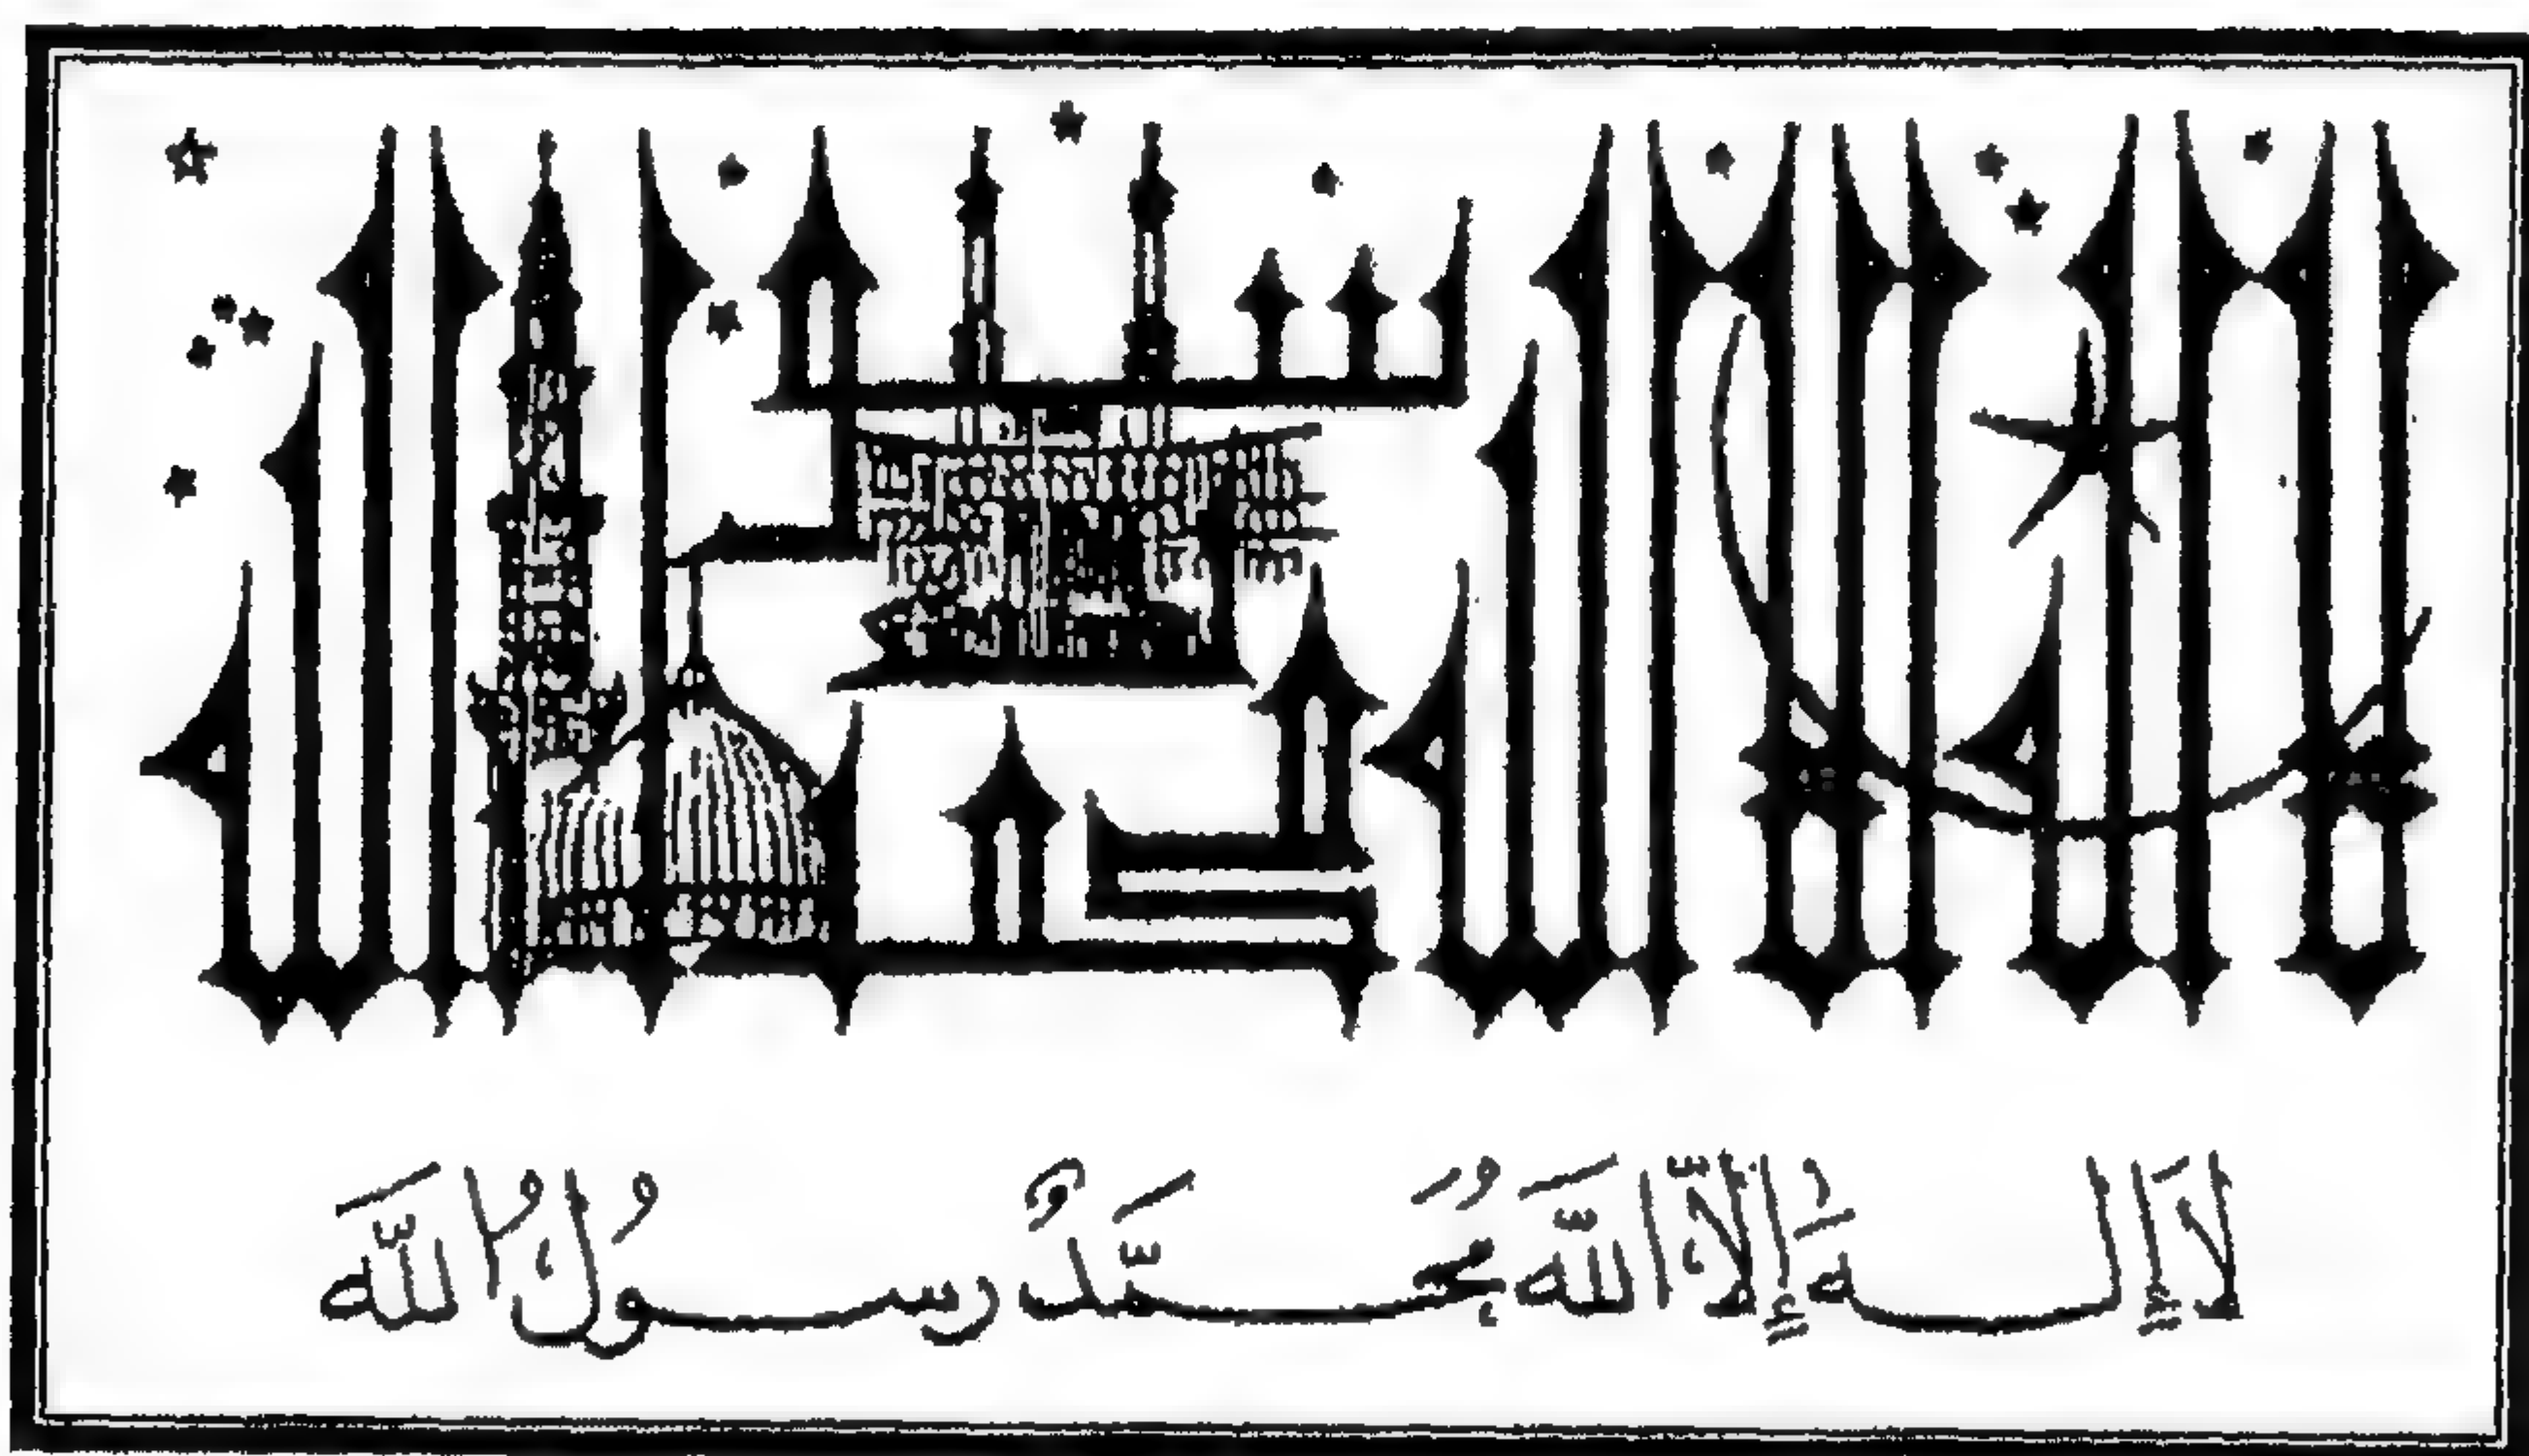 لا إله إلا الله محمد رسول الله
لَا إِلَـــهَ إِلَّا اللَّهُ مُحَـــمَّدٌ رَسُـــولُ اللَّه